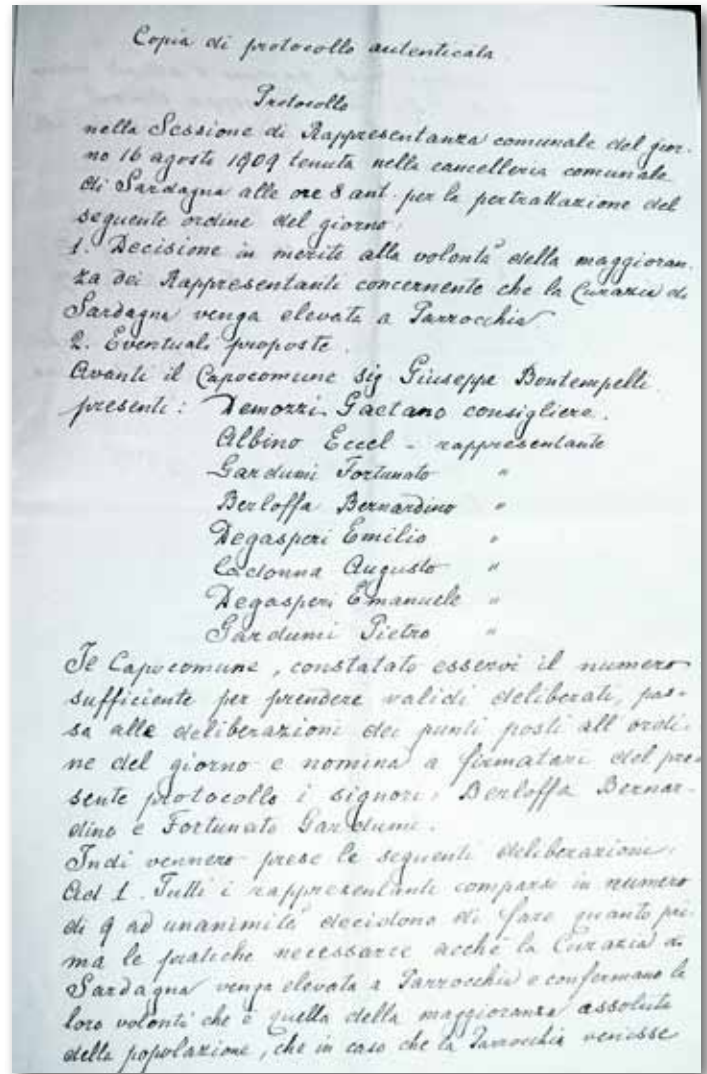 Copia di protocollo autenticata.
Protocollo
nella Sessione di Rappresentanza comunale del gior-
no 16 agosto 1909 tenuta nella cancelleria comunale
di Sardagna alle ore 8 ant. per la pertrattazione del
seguente ordine del giorno:
1. Decisione in merito alla volontà della maggioran-
za dei Rappresentanti concernente che la Curazia di
Sardagna venga elevata a Parrocchia
2. Eventuali proposte.
Avanti il Capocomune sig Giuseppe Bontempelli.
presenti: Demozzi Gaetano consigliere.
Albino Eccel - rappresentante
Gardumi Fortunato "
Berloffa Bernardino "
Degasperi Emilio "
Cadonna Augusto "
Degasperi Emanuele "
Gardumi Pietro "
Il Capocomune, constatato esservi il numero
sufficiente per prendere validi deliberati, pas-
sa alle deliberazioni dei punti posti all'ordi-
ne del giorno e nomina a firmatari del pre
sente protocollo i signori: Berloffa Bernar-
dino e Fortunato Gardumi.
Indi vennero prese le seguenti deliberazioni:
Ad 1. Tutti i rappresentanti comparsi in numero
di 9 ad unanimità decidono di fare quanto pri-
ma le pratiche necessarie acchè la Curazia di
Sardagna venga elevata a Parrocchia e confermano la
loro volontà che è quella della maggioranza assoluta
della popolazione, che in caso che la Parrocchia venisse